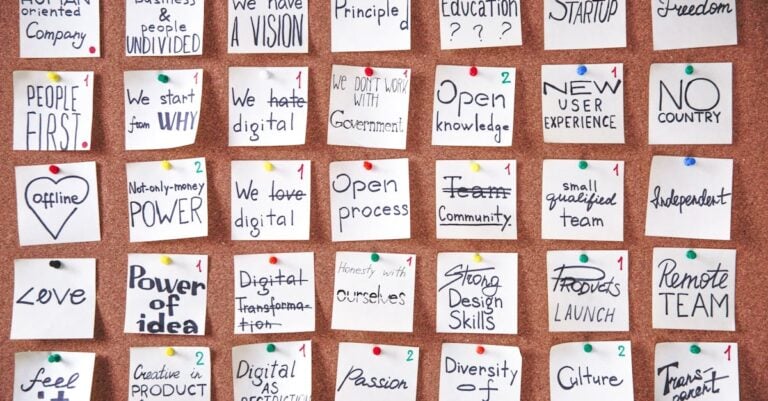 HUMAN
oriented
Company
Business
& people
UNDIVIDED
We have
A VISION
Principled
Education
? ? ?
STARTUP
Freedom
1
PEOPLE
FIRST
1
We start
from WHY
1
We hate
digital
1
We DON'T WORK
WITH
Government
2
Open
knowledge
1
NEW
USER
EXPERIENCE
NO
COUNTRY
offline
2
Not-only-money
POWER
1
We love
digital
Open
process
1
Team
Community
1
small
qualified
team
Independent
Love
1
Power
of
idea
1
Digital
Transformation
1
Honesty with
ourselves
Strong
Design
Skills
1
Products
LAUNCH
Remote
TEAM
feel
it
2
Creative in
PRODUCT
1
Digital
AS
RESTRICTION
2
Passion
1
Diversity
of
2
Culture
1
Trans-
parent